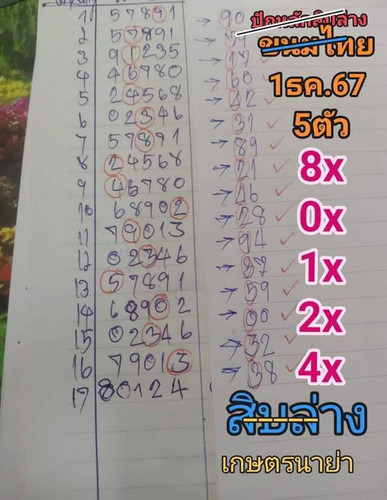 ปักหลักสิบล่าง
ขนมไทย
1ธค.67
5ตัว
8x
0x
1x
2x
4x
สิบล่าง
เกษตรนาย่า
1 57891 → 90
2 57891
3 91235 → 17 ✓
4 46780 → 60 ✓
5 24568 → 42 ✓
6 02346 → 31 ✓
7 57891 → 89 ✓
8 24568 → 21 ✓
9 46780 → 46 ✓
10 68902 → 28 ✓
11 79013 → 94 ✓
12 02346 → 37 ✓
13 57891 → 59 ✓
14 68902 → 00 ✓
15 02346 → 32 ✓
16 79013 → 38 ✓
17 80124